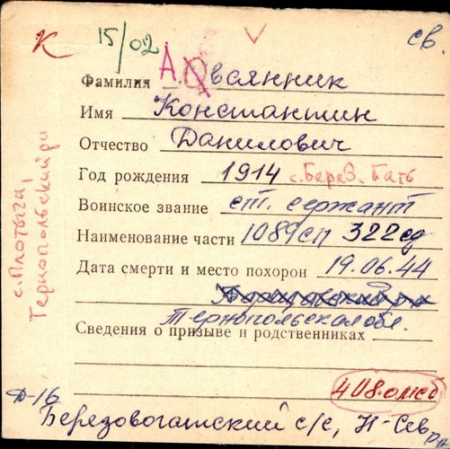 К 15/02 св.
Фамилия А. Овсянник
Имя Константин
Отчество Данилович
Год рождения 1914 с. Берез. Гать
Воинское звание ст. сержант
Наименование части 1089 сп 322 сд
Дата смерти и место похорон 19.06.44
Тернопольская обл.
Сведения о призыве и родственниках
408 омсб
Ф-16
Березовогатский с/с, Н-Сев. р-н
с. Плотыча,
Тернопольский р-н